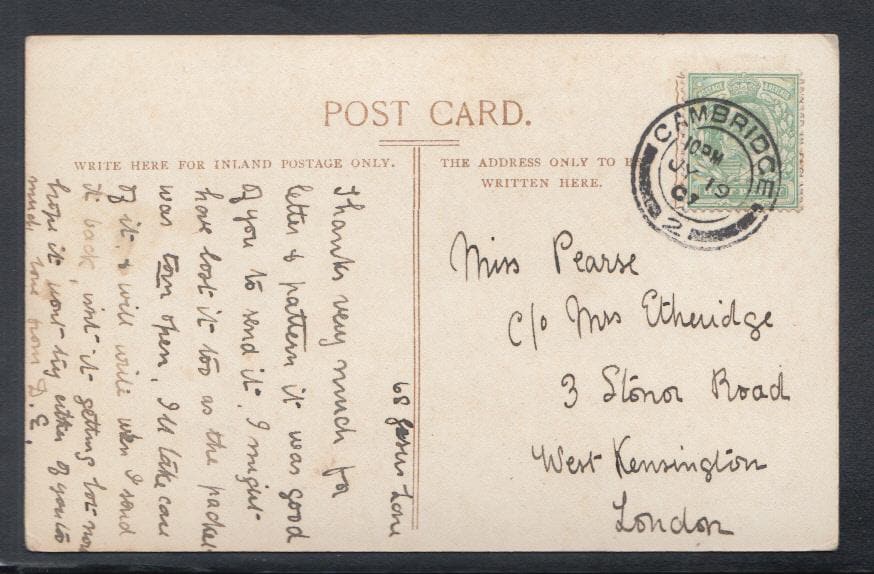 POST CARD.
WRITE HERE FOR INLAND POSTAGE ONLY.
THE ADDRESS ONLY TO BE
WRITTEN HERE.
CAMBRIDGE
10 PM
JY 19
07
2
Miss Pearse
c/o Mrs Etheridge
3 Stonor Road
West Kensington
London
68 Jesus Lane
Thanks very much for
letter & pattern it was good
of you to send it. I might
have lost it too as the packet
was torn open, I'll take care
of it. & will write when I send
it back, isn't it getting hot now
hope it wont try either of you too
much love from D.E.